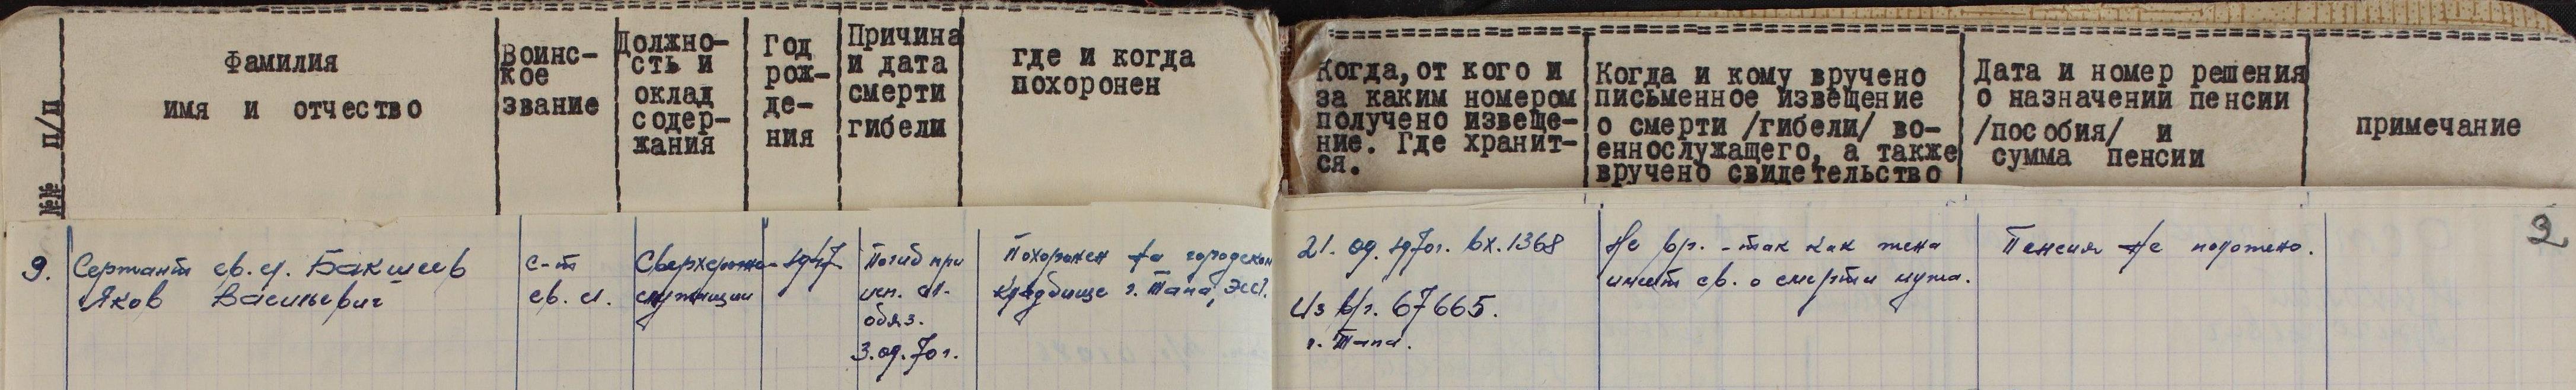 №№ п/п
Фамилия
имя и отчество
Воинс-
кое
звание
Должно-
сть и
оклад
содер-
жания
Год
рож-
де-
ния
Причина
и дата
смерти
гибели
где и когда
похоронен
Когда, от кого и
за каким номером
получено извеще-
ние. Где хранит-
ся.
Когда и кому вручено
письменное извещение
о смерти /гибели/ во-
еннослужащего, а также
вручено свидетельство
Дата и номер решения
о назначении пенсии
/пособия/ и
сумма пенсии
примечание
9.
Сержант св. сл. Бакшеев
Яков Васильевич
с-т
св. сл.
Сверхсрочно-
служащий
1947
Погиб при
исп. сл.
обяз.
3.09.70 г.
Похоронен на городском
кладбище г. Тапа, ЭССР.
21.09.1970 г. вх. 1368
Из в/ч. 67665.
г. Тапа.
Не вр. - так как жена
имеет св. о смерти мужа.
Пенсия не положено.
2